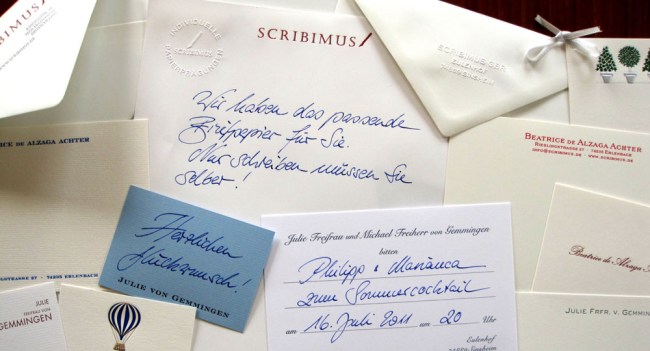 SCRIBIMUS
SCRIBIMUS
INDIVIDUELLE
SCRIBIMUS
PAPIERPRÄGUNGEN
Wir haben das passende
Briefpapier für Sie.
Nur schreiben müssen Sie
selber!
BEATRICE DE ALZAGA ACHTER
RIESLINGSTRASSE 27 · 74235 ERLENBACH
INFO@SCRIBIMUS.DE · WWW.SCRIBIMUS.DE
CE DE ALZAGA ACHTER
GSTRASSE 27 · 74235 ERLENBACH
Herzlichen
Glückwunsch!
JULIE VON GEMMINGEN
Julie Freifrau und Michael Freiherr von Gemmingen
bitten
Philipp & Marianca
zum Sommercocktail
am 16. Juli 2011 um 20 Uhr
Eulenhof
Beatrice de Alzaga A
JULIE FRFR. V. GEMMIN
JULIE
FREIFRAU VON
GEMMINGEN